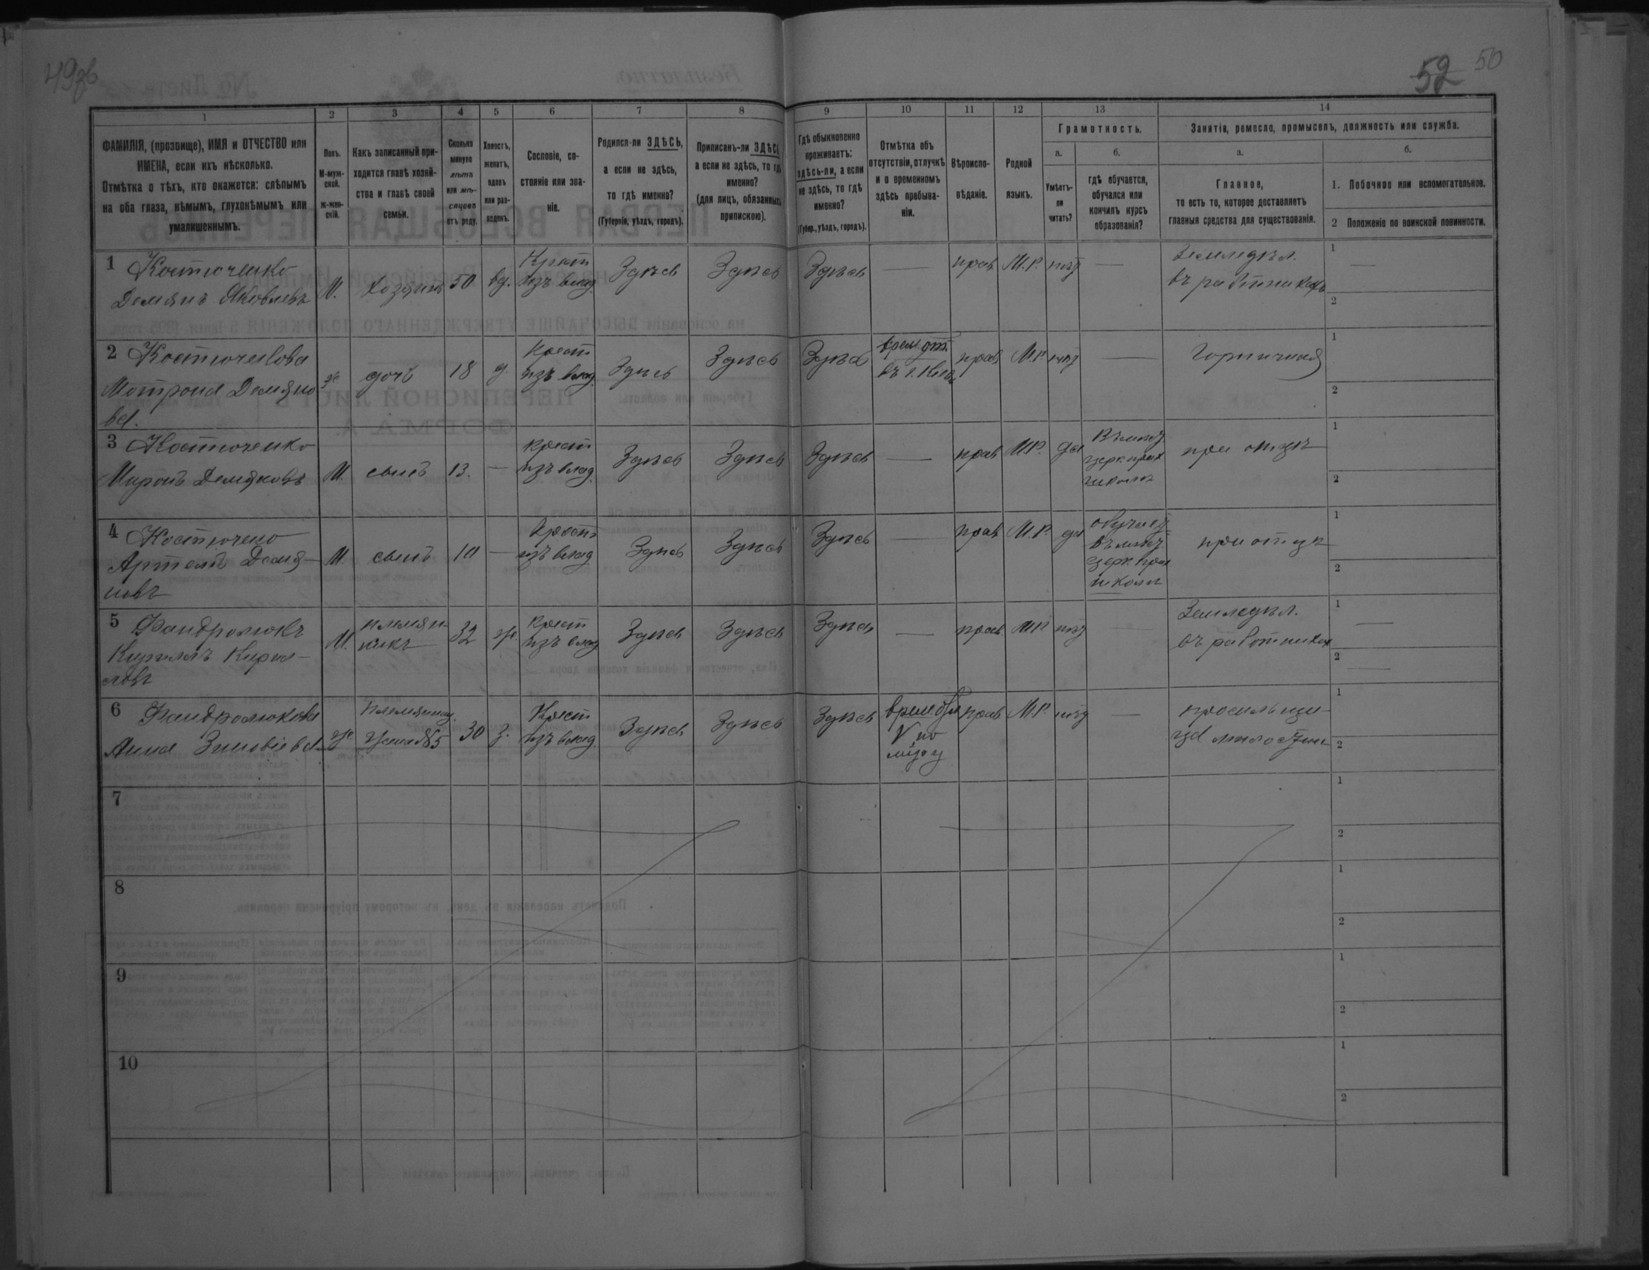 49об
52 50
1 2 3 4 5 6 7 8 9 10 11 12 13 14
ФАМИЛІЯ, (прозвище), ИМЯ и ОТЧЕСТВО или
ИМЕНА, если ихъ нѣсколько.
Отмѣтка о тѣхъ, кто окажется: слѣпымъ
на оба глаза, нѣмымъ, глухонѣмымъ или
умалишеннымъ.
Полъ.
М-муж-
ской.
Ж-жен-
скій.
Какъ записанный при-
ходится главѣ хозяй-
ства и главѣ своей
семьи.
Сколько
минуло
лѣтъ
или мѣ-
сяцевъ
отъ роду.
Холостъ,
женатъ,
вдовъ
или раз-
веденъ.
Сословіе, со-
стояніе или зва-
ніе.
Родился-ли ЗДѢСЬ,
а если не здѣсь,
то гдѣ именно?
(Губернія, уѣздъ, городъ).
Приписанъ-ли ЗДѢСЬ,
а если не здѣсь, то гдѣ
именно?
(для лицъ, обязанныхъ
припискою).
Гдѣ обыкновенно
проживаетъ:
здѣсь-ли, а если
не здѣсь, то гдѣ
именно?
(Губер., уѣздъ, городъ).
Отмѣтка объ
отсутствіи, отлучкѣ
и о временномъ
здѣсь пребыва-
ніи.
Вѣроиспо-
вѣданіе.
Родной
языкъ.
Грамотность.
а.
Умѣетъ-
ли
читать?
б.
гдѣ обучается,
обучался или
кончилъ курсъ
образованія?
Занятіе, ремесло, промыселъ, должность или служба.
а.
Главное,
то есть то, которое доставляетъ
главныя средства для существованія.
б.
1. Побочное или вспомогательное.
2 Положеніе по воинской повинности.
1 Костюченко
Демянъ Яковлевъ
М. хозяинъ 50 вд.
Крест
изъ влад
Здѣсь Здѣсь Здѣсь — прав М.Р. нѣт —
Земледѣл.
въ работникахъ
1 —
2
2 Костюченкова
Матрона Демяно
ва.
ж дочь 18 д
Крест
изъ влад
Здѣсь Здѣсь Здѣсь
врем от.
въ г.
прав М.Р нѣт —
Горничная
1
2
3 Костюченко
Миронъ Демяновъ
М. сынъ 13. —
крест
изъ влад
Здѣсь Здѣсь Здѣсь — прав М.Р. да
церк прих
школы
при отцѣ
1
2
4 Костючено
Артемъ Демя-
новъ
М сынъ 10 —
Крест
изъ влад
Здѣсь Здѣсь Здѣсь — прав М.Р. да
обучался
церк прих
школы
при отцѣ
1
2
5
Кирилъ Кирил-
ловъ
М. племян
никъ
32 ж.
крест
изъ влад
Здѣсь Здѣсь Здѣсь — прав М.Р нѣт —
Земледѣл.
въ работникахъ
1 —
2 —
6
Анна Зиновіева
ж
жена №5
30 з.
Крест
изъ влад
Здѣсь Здѣсь Здѣсь
прав М.Р нѣт —
за милостыни
1
2
7
1
2
8
1
2
9
1
2
10
1
2